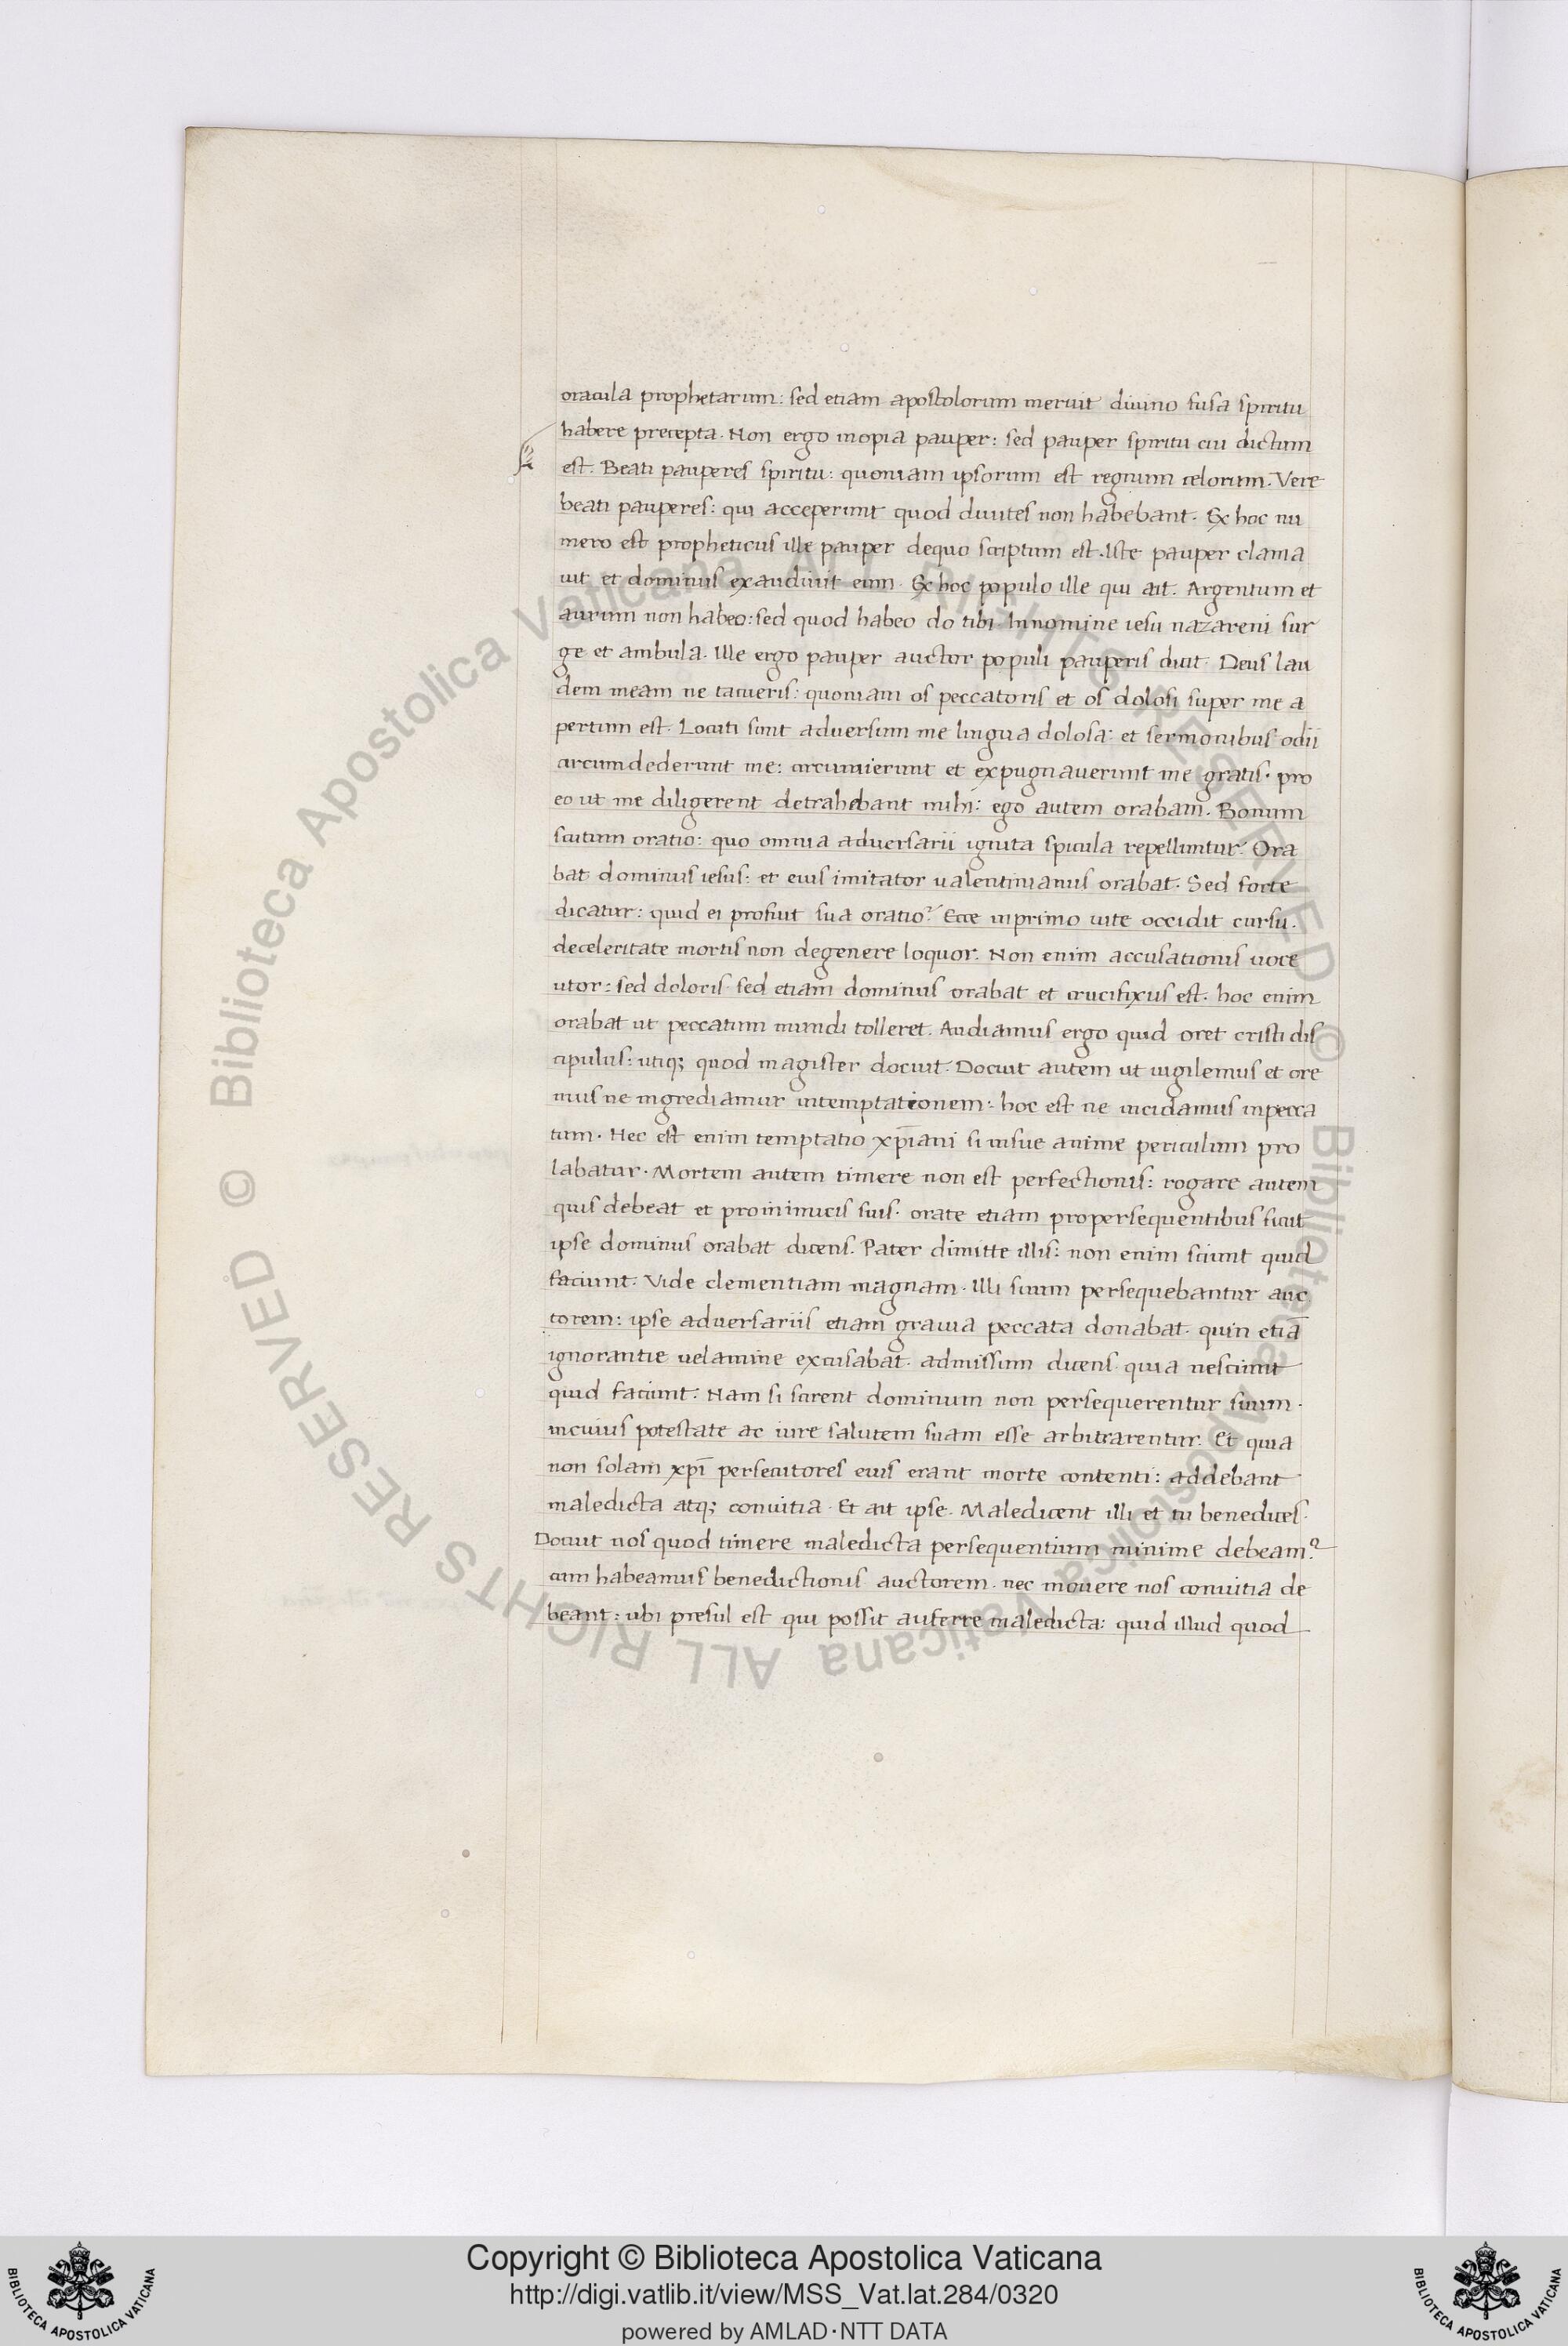 oracula prophetarum: sed etiam apostolorum meruit divino fusa spiritu
habere precepta. Non ergo inopia pauper: sed pauper spiritu cui dictum
est. Beati pauperes spiritu: quoniam ipsorum est regnum celorum. Vere
beati pauperes: qui acceperunt quod divites non habebant. Ex hoc nu
mero est propheticus ille pauper dequo scriptum est. Iste pauper clama
uit et dominus exaudiuit eum. Ex hoc populo ille qui ait. Argentum et
aurum non habeo: sed quod habeo do tibi. Innomine iesu nazareni sur
ge et ambula. Ille ergo pauper auctor populi pauperis dicit. Deus lau
dem meam ne tacueris: quoniam os peccatoris et os dolosi super me a
pertum est. Locuti sunt aduersum me lingua dolosa: et sermonibus odii
circumdederunt me: circumierunt et expugnauerunt me gratis. pro
eo ut me diligerent detrahebant mihi: ego autem orabam. Bonum
scutum oratio: quo omnia aduersarii ignita spicula repelluntur. Ora
bat dominus iesus: et eius imitator ualentinianus orabat. Sed forte
dicatur: quid ei profuit sua oratio? Ecce inprimo uite occidit cursu.
deceleritate mortis non degenere loquor. Non enim accusationis uoce
utor: sed doloris. sed etiam dominus orabat et crucifixus est. hoc enim
orabat ut peccatum mundi tolleret. Audiamus ergo quid oret cristi dis
cipulus: utiq; quod magister docuit. Docuit autem ut uigilemus et ore
mus ne ingrediamur intemptationem: hoc est ne incidamus inpecca
tum. Hec est enim temptatio xp̄iani si insue anime periculum pro
labatur. Mortem autem timere non est perfectionis: rogare autem
quis debeat et proinimicis suis. orate etiam propersequentibus sicut
ipse dominus orabat dicens. Pater dimitte illis: non enim sciunt quid
faciunt. Vide clementiam magnam. Illi suum persequebantur auc
torem: ipse aduersariis etiam grauia peccata donabat. quin etiā
ignorantie uelamine excusabat. admissum dicens. quia nesciunt
quid faciunt. Nam si scirent dominum non persequerentur suum.
incuius potestate ac iure salutem suam esse arbitrarentur. Et quia
non solam xp̄i persecutores eius erant morte contenti: addebant
maledicta atq; conuitia. Et ait ipse. Maledicent illi et tu benedices.
Docuit nos quod timere maledicta persequentium minime debeam?
cum habeamus benedictionis auctorem. nec mouere nos conuitia de
beant: ubi presul est qui possit auferre maledicta: quid illud quod
© Biblioteca Apostolica Vaticana ALL RIGHTS RESERVED
© Biblioteca Apostolica Vaticana ALL RIGHTS RESERVED
Copyright © Biblioteca Apostolica Vaticana
http://digi.vatlib.it/view/MSS_Vat.lat.284/0320
powered by AMLAD·NTT DATA
BIBLIOTECA APOSTOLICA VATICANA
BIBLIOTECA APOSTOLICA VATICANA